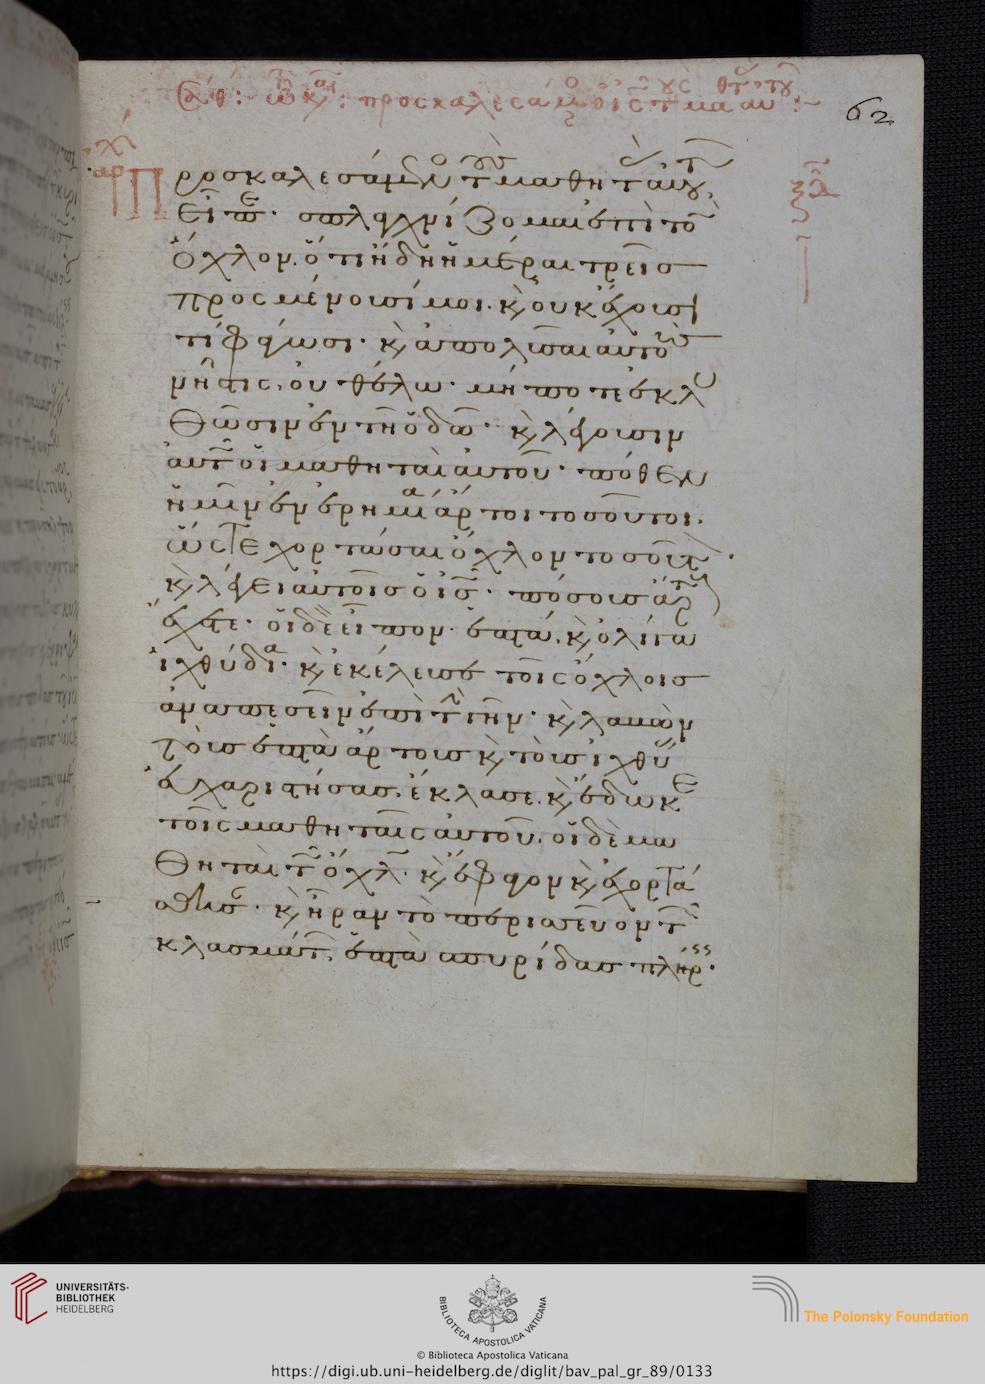 προσκαλεσάμ ὁ ις τ μα αυ
62
Προσκαλεσάμ ὁ ις τ μαθητ αὐτ
εἶπε· σπλαχνίζομαι ἐπὶ τὸ
ὄχλον. ὅτι ἤδη ἡμέραι τρεῖς
προσμένουσί μοι. κ οὐκ ἔχουσι
τί φάγωσι· κ ἀπολῦσαι αὐτοὺς
νήστις, οὐ θέλω· μή ποτε ἐκλυ
θῶσιν ἐν τῇ ὁδῷ· κ λέγουσιν
αὐτ οἱ μαθηταὶ αὐτοῦ· πόθεν
ἡμῖν ἐν ἐρημία ἄρτοι τοσοῦτοι.
ὥστε χορτάσαι ὄχλον τοσοῦτ.
κ λέγει αὐτοῖς ὁ ις· πόσους ἄρτ
ἔχετε· οἱ δὲ εἶπον· ἑπτά, κ ὀλίγα
ἰχθύδια· κ ἐκέλευσε τοῖς ὄχλοις
ἀναπεσεῖν ἐπὶ τ γῆν· κ λαβὼν
τοὺς ἑπτὰ ἄρτους κ τοὺς ἰχθύ
εὐχαριστήσας. ἔκλασε. κ ἔδωκε
τοῖς μαθηταῖς αὐτοῦ. οἱ δὲ μα
θηταὶ τ ὄχλ. κ ἔφαγον κ ἐχορτά
σθησ· κ ἦραν τὸ περισσεῦον τ
κλασμάτ, ἑπτὰ σπυρίδας πλήρ.
UNIVERSITÄTS-
BIBLIOTHEK
HEIDELBERG
BIBLIOTECA APOSTOLICA VATICANA
The Polonsky Foundation
© Biblioteca Apostolica Vaticana
https://digi.ub.uni-heidelberg.de/diglit/bav_pal_gr_89/0133